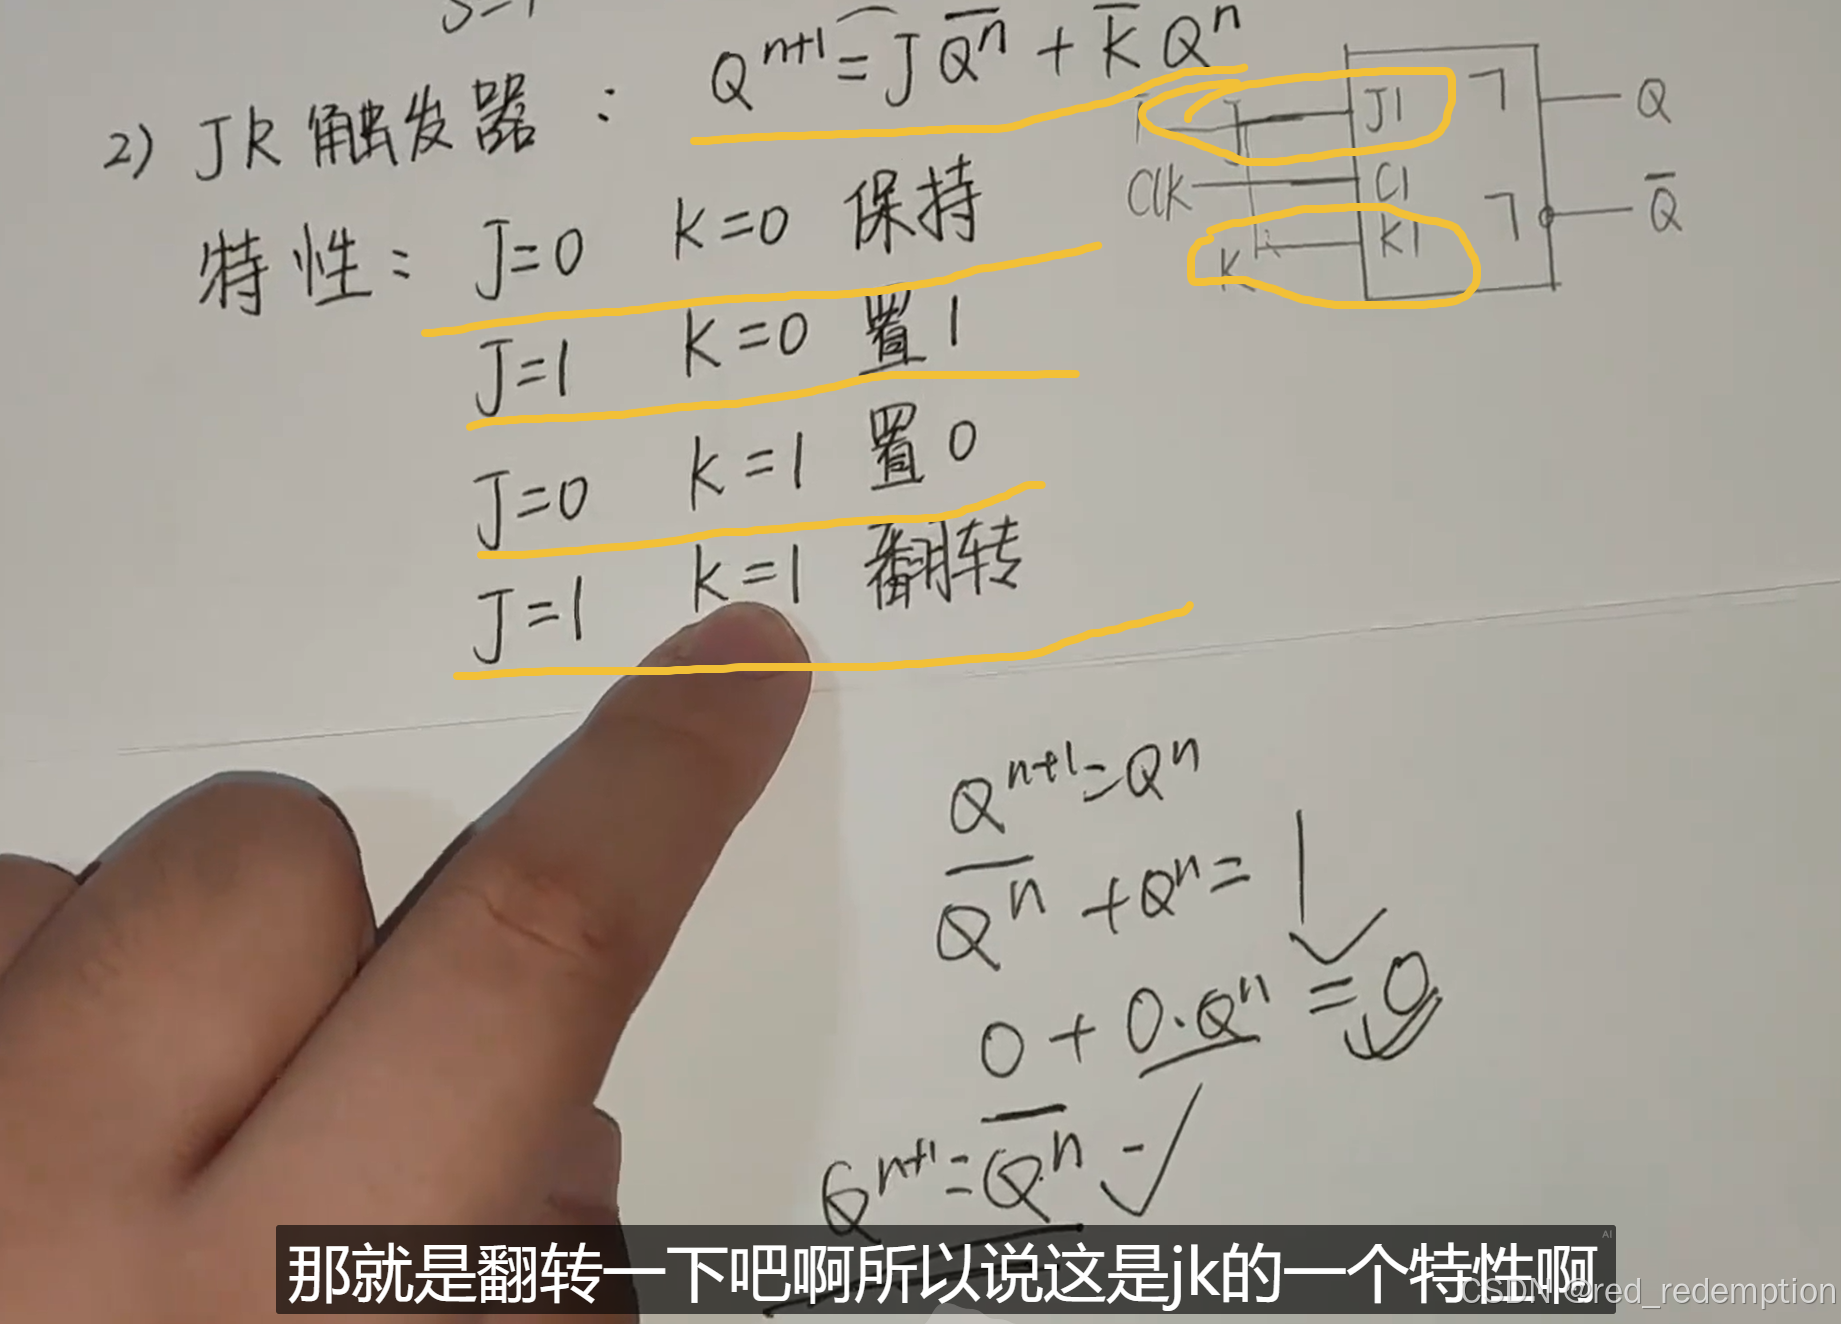 2) JK 触发器：Qⁿ⁺¹ = J Q̅ⁿ + K̅ Qⁿ
特性：J=0 K=0 保持
J=1 K=0 置1
J=0 K=1 置0
J=1 K=1 翻转
J J1 Q
Clk C1
K K1 Q̅
Qⁿ⁺¹=Qⁿ
Q̅ⁿ+Qⁿ=1
0+0·Qⁿ=0
Qⁿ⁺¹=Q̅ⁿ
那就是翻转一下吧啊所以说这是jk的一个特性啊
AI
CSDN @red_redemption